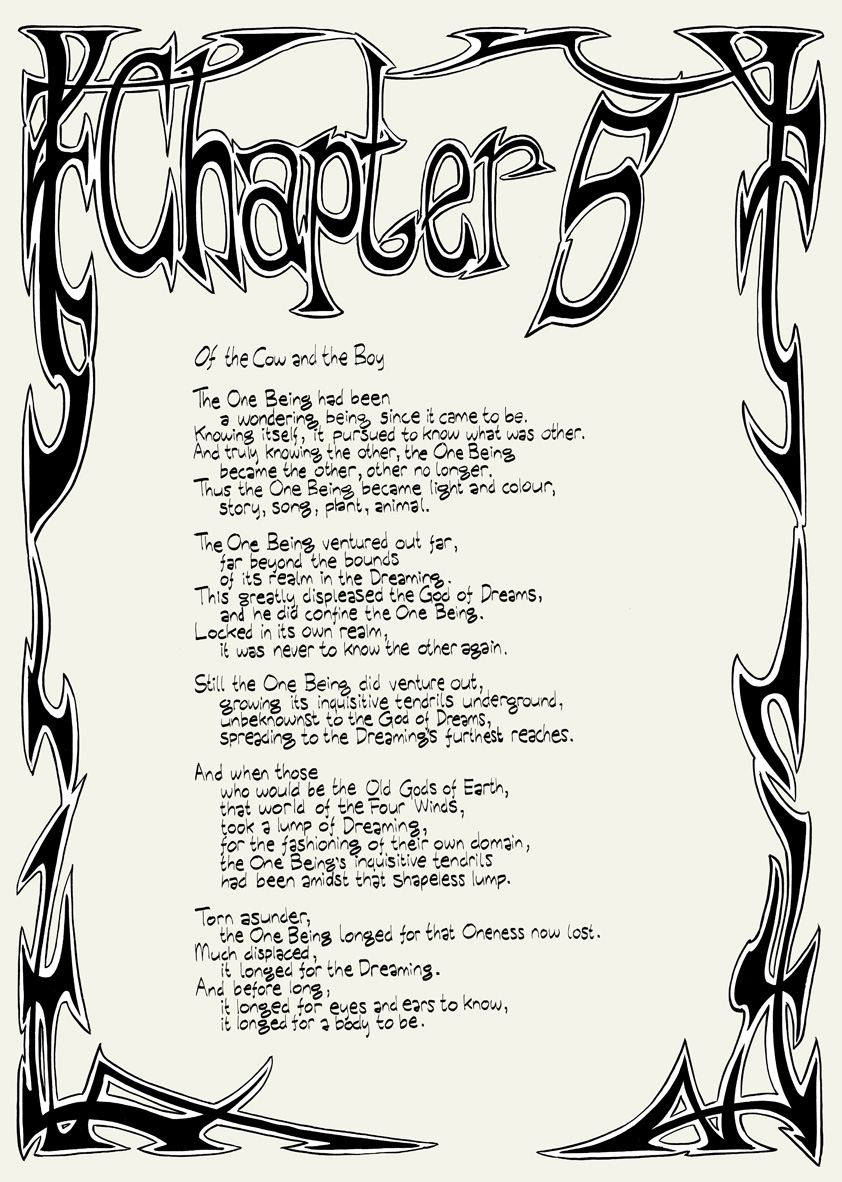 Chapter 5
Of the Cow and the Boy
The One Being had been
a wondering being since it came to be.
Knowing itself, it pursued to know what was other.
And truly knowing the other, the One Being
became the other, other no longer.
Thus the One Being became light and colour,
story, song, plant, animal.
The One Being ventured out far,
far beyond the bounds
of its realm in the Dreaming.
This greatly displeased the God of Dreams,
and he did confine the One Being.
Locked in its own realm,
it was never to know the other again.
Still the One Being did venture out,
growing its inquisitive tendrils underground,
unbeknownst to the God of Dreams,
spreading to the Dreaming's furthest reaches.
And when those
who would be the Old Gods of Earth,
that world of the Four Winds,
took a lump of Dreaming,
for the fashioning of their own domain,
the One Being's inquisitive tendrils
had been amidst that shapeless lump.
Torn asunder,
the One Being longed for that Oneness now lost.
Much displaced,
it longed for the Dreaming.
And before long,
it longed for eyes and ears to know,
it longed for a body to be.